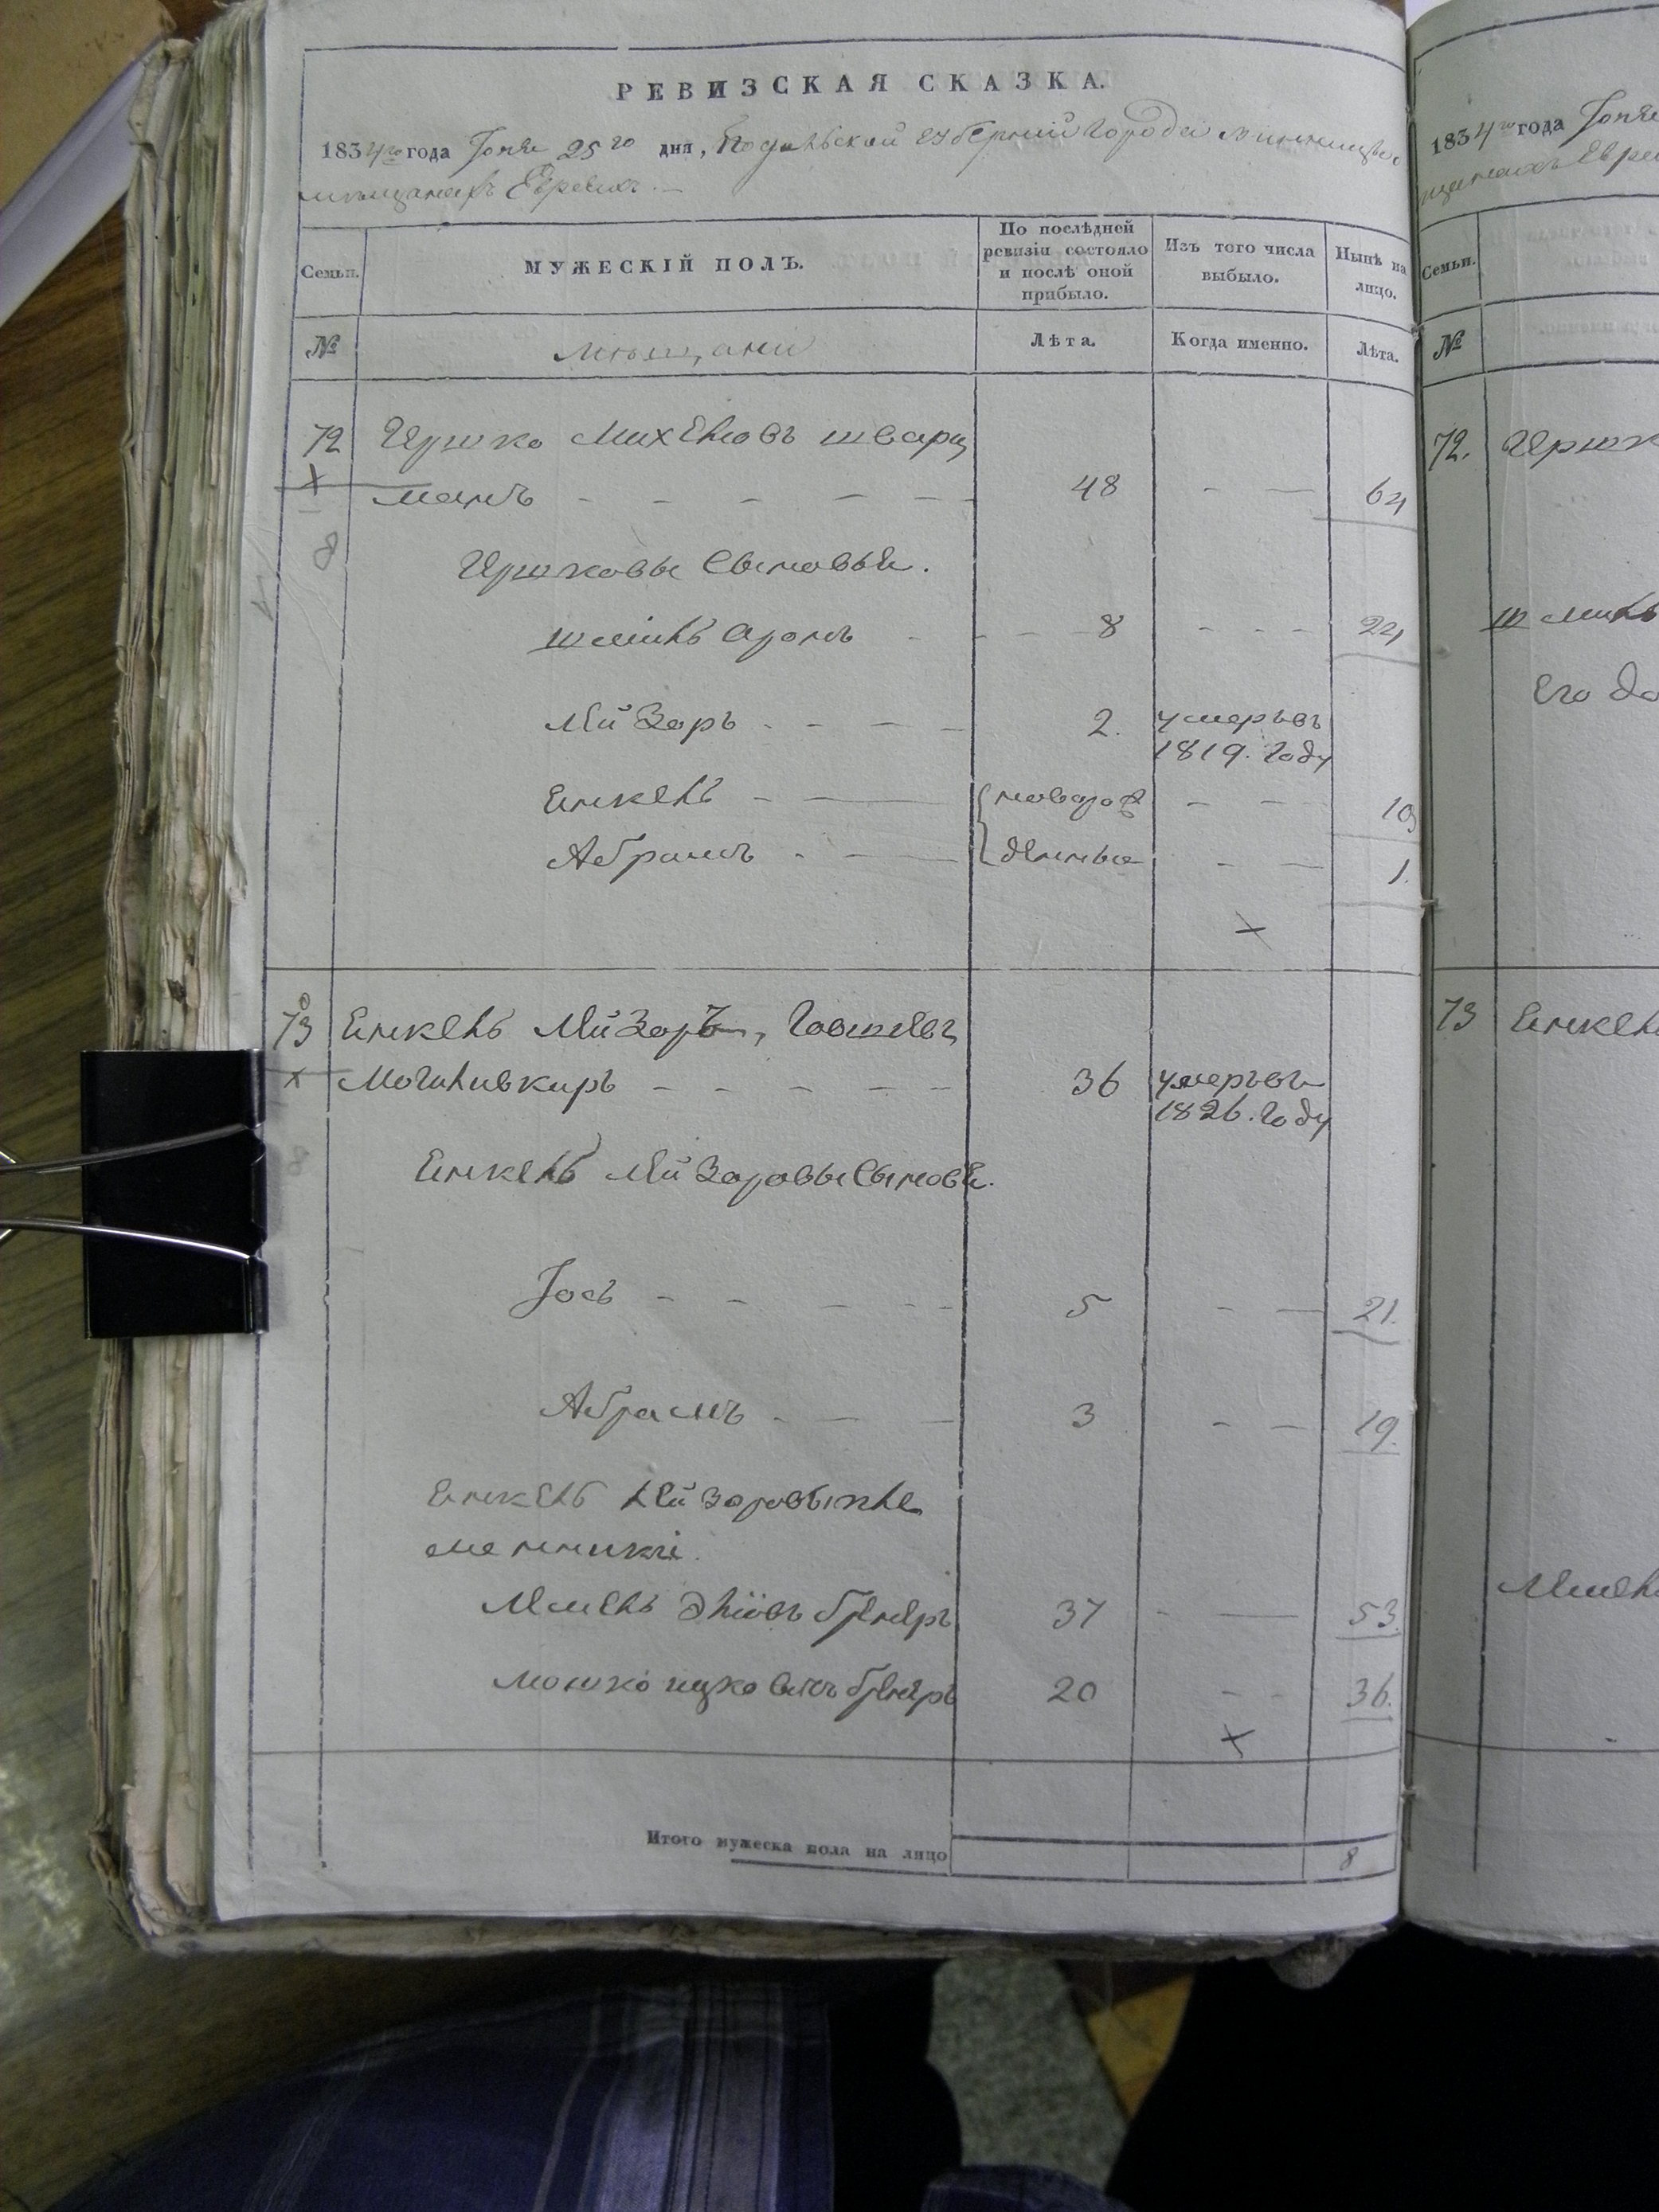 РЕВИЗСКАЯ СКАЗКА.
1834го года Іюня 25го дня, Подольской Губерніи Города Винницы о
мѣщанахъ Евреяхъ.
Семьи.
МУЖЕСКІЙ ПОЛЪ.
По послѣдней ревизіи состояло и послѣ оной прибыло.
Изъ того числа выбыло.
Нынѣ на лицо.
№
мѣщани
Лѣта.
Когда именно.
Лѣта.
72 Иршко Михелювъ шварц
манъ 48 64
Иршковы сыновья.
шмиль аронъ 8 24
Лейзоръ 2. умеръ въ
1819. году
Енкель новорож 10
Абрамъ денные 1.
73 Енкель Лейзоръ,
Могиливкиръ 36 умеръ въ
1826. году
Енкель Лейзоровы сынове.
Іось 5 21.
Абрамъ 3 19.
Енкель Лейзоровы пле
менники.
37 53.
мошко ицковичъ 20 36.
Итого мужеска пола на лицо 8
1834го года Іюня
щанахъ Евре
Семьи.
№
72. Иршк
шмиль
Его до
73 Енкель